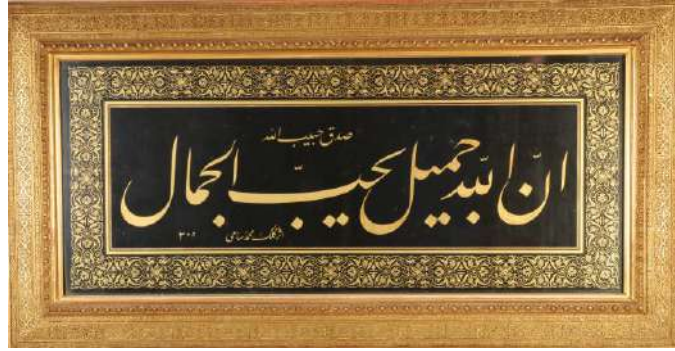 صدق حبيب الله
ان الله جميل يحب الجمال